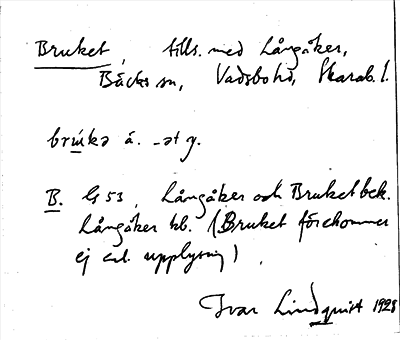 Bruket, tills. med Långåker,
Bäcks sn, Vadsbo hd, Skarab. l.
brúkə á. -ət g.
B. Gs 53, Långåker och Bruket bek.
Långåker kb. (Bruket förekommer
ej enl. upplysning).
Ivar Lindquist 1928